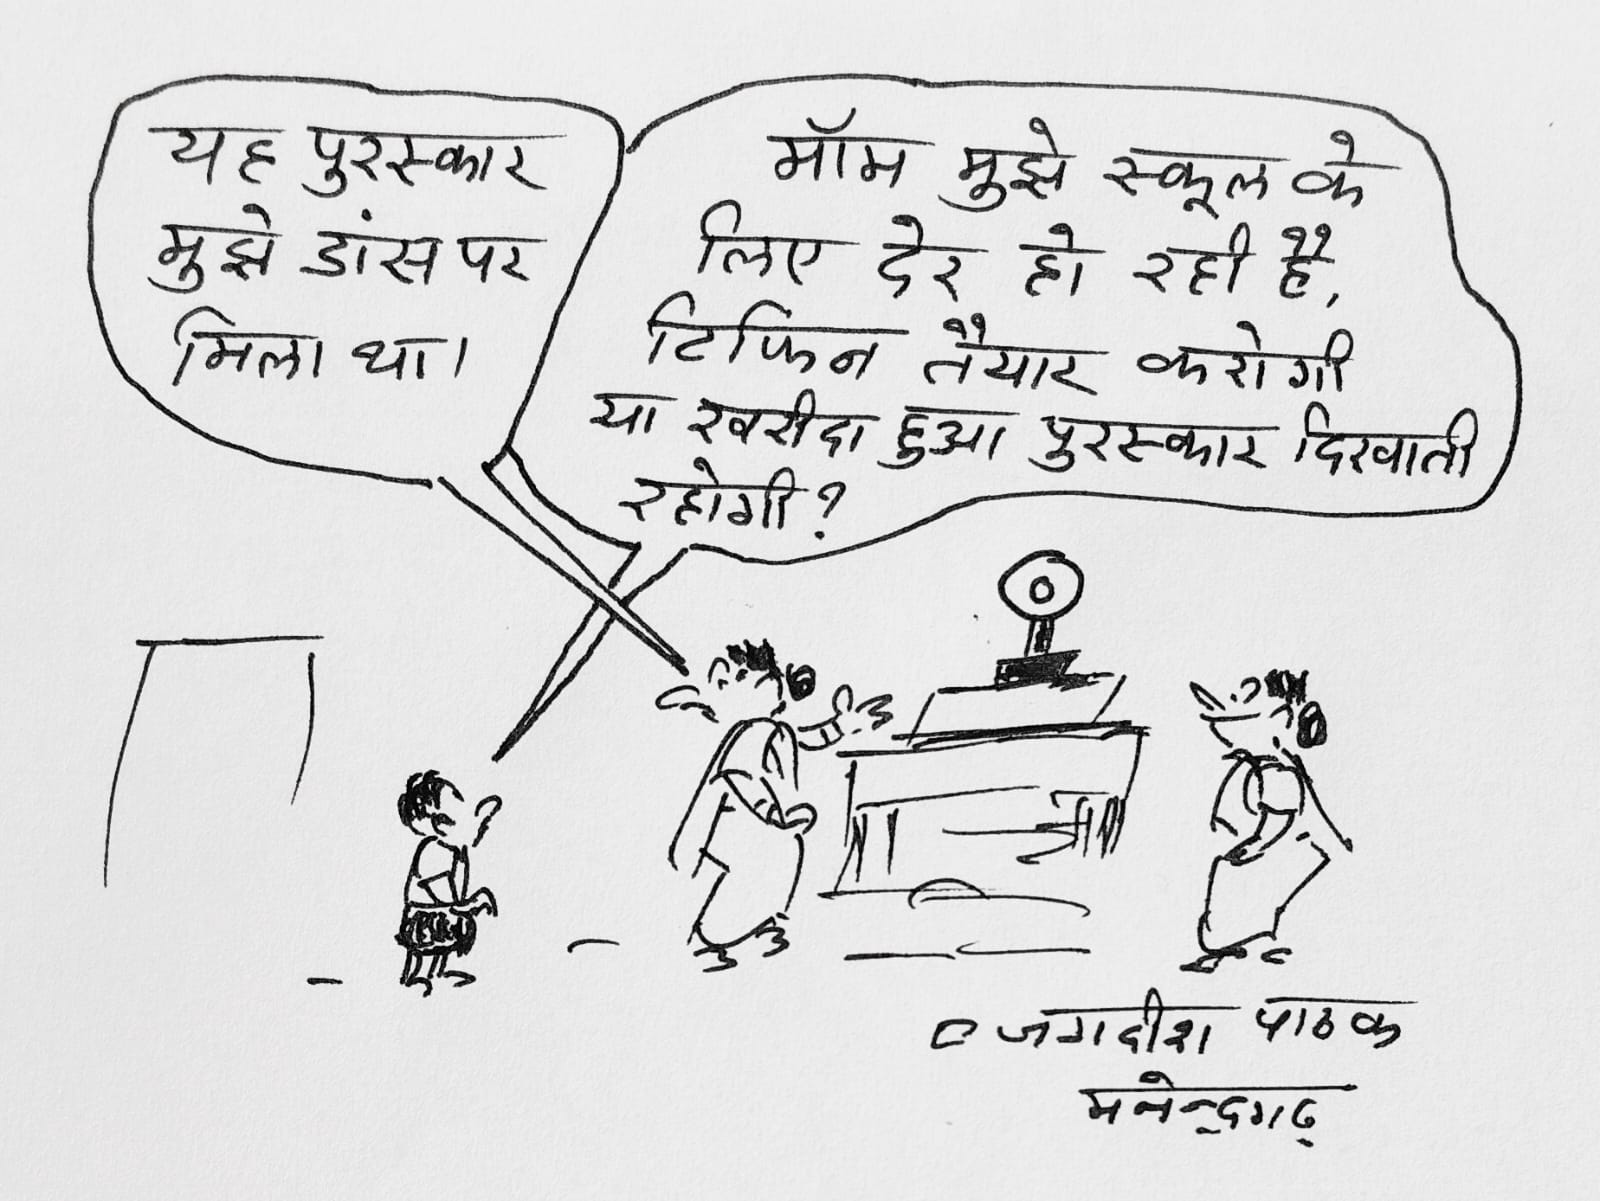 यह पुरस्कार
मुझे डांस पर
मिला था।
मॉम मुझे स्कूल के
लिए देर हो रही है,
टिफिन तैयार करोगी
या खरीदा हुआ पुरस्कार दिखाती
रहोगी?
जगदीश पाठक
मनेन्द्रगढ़